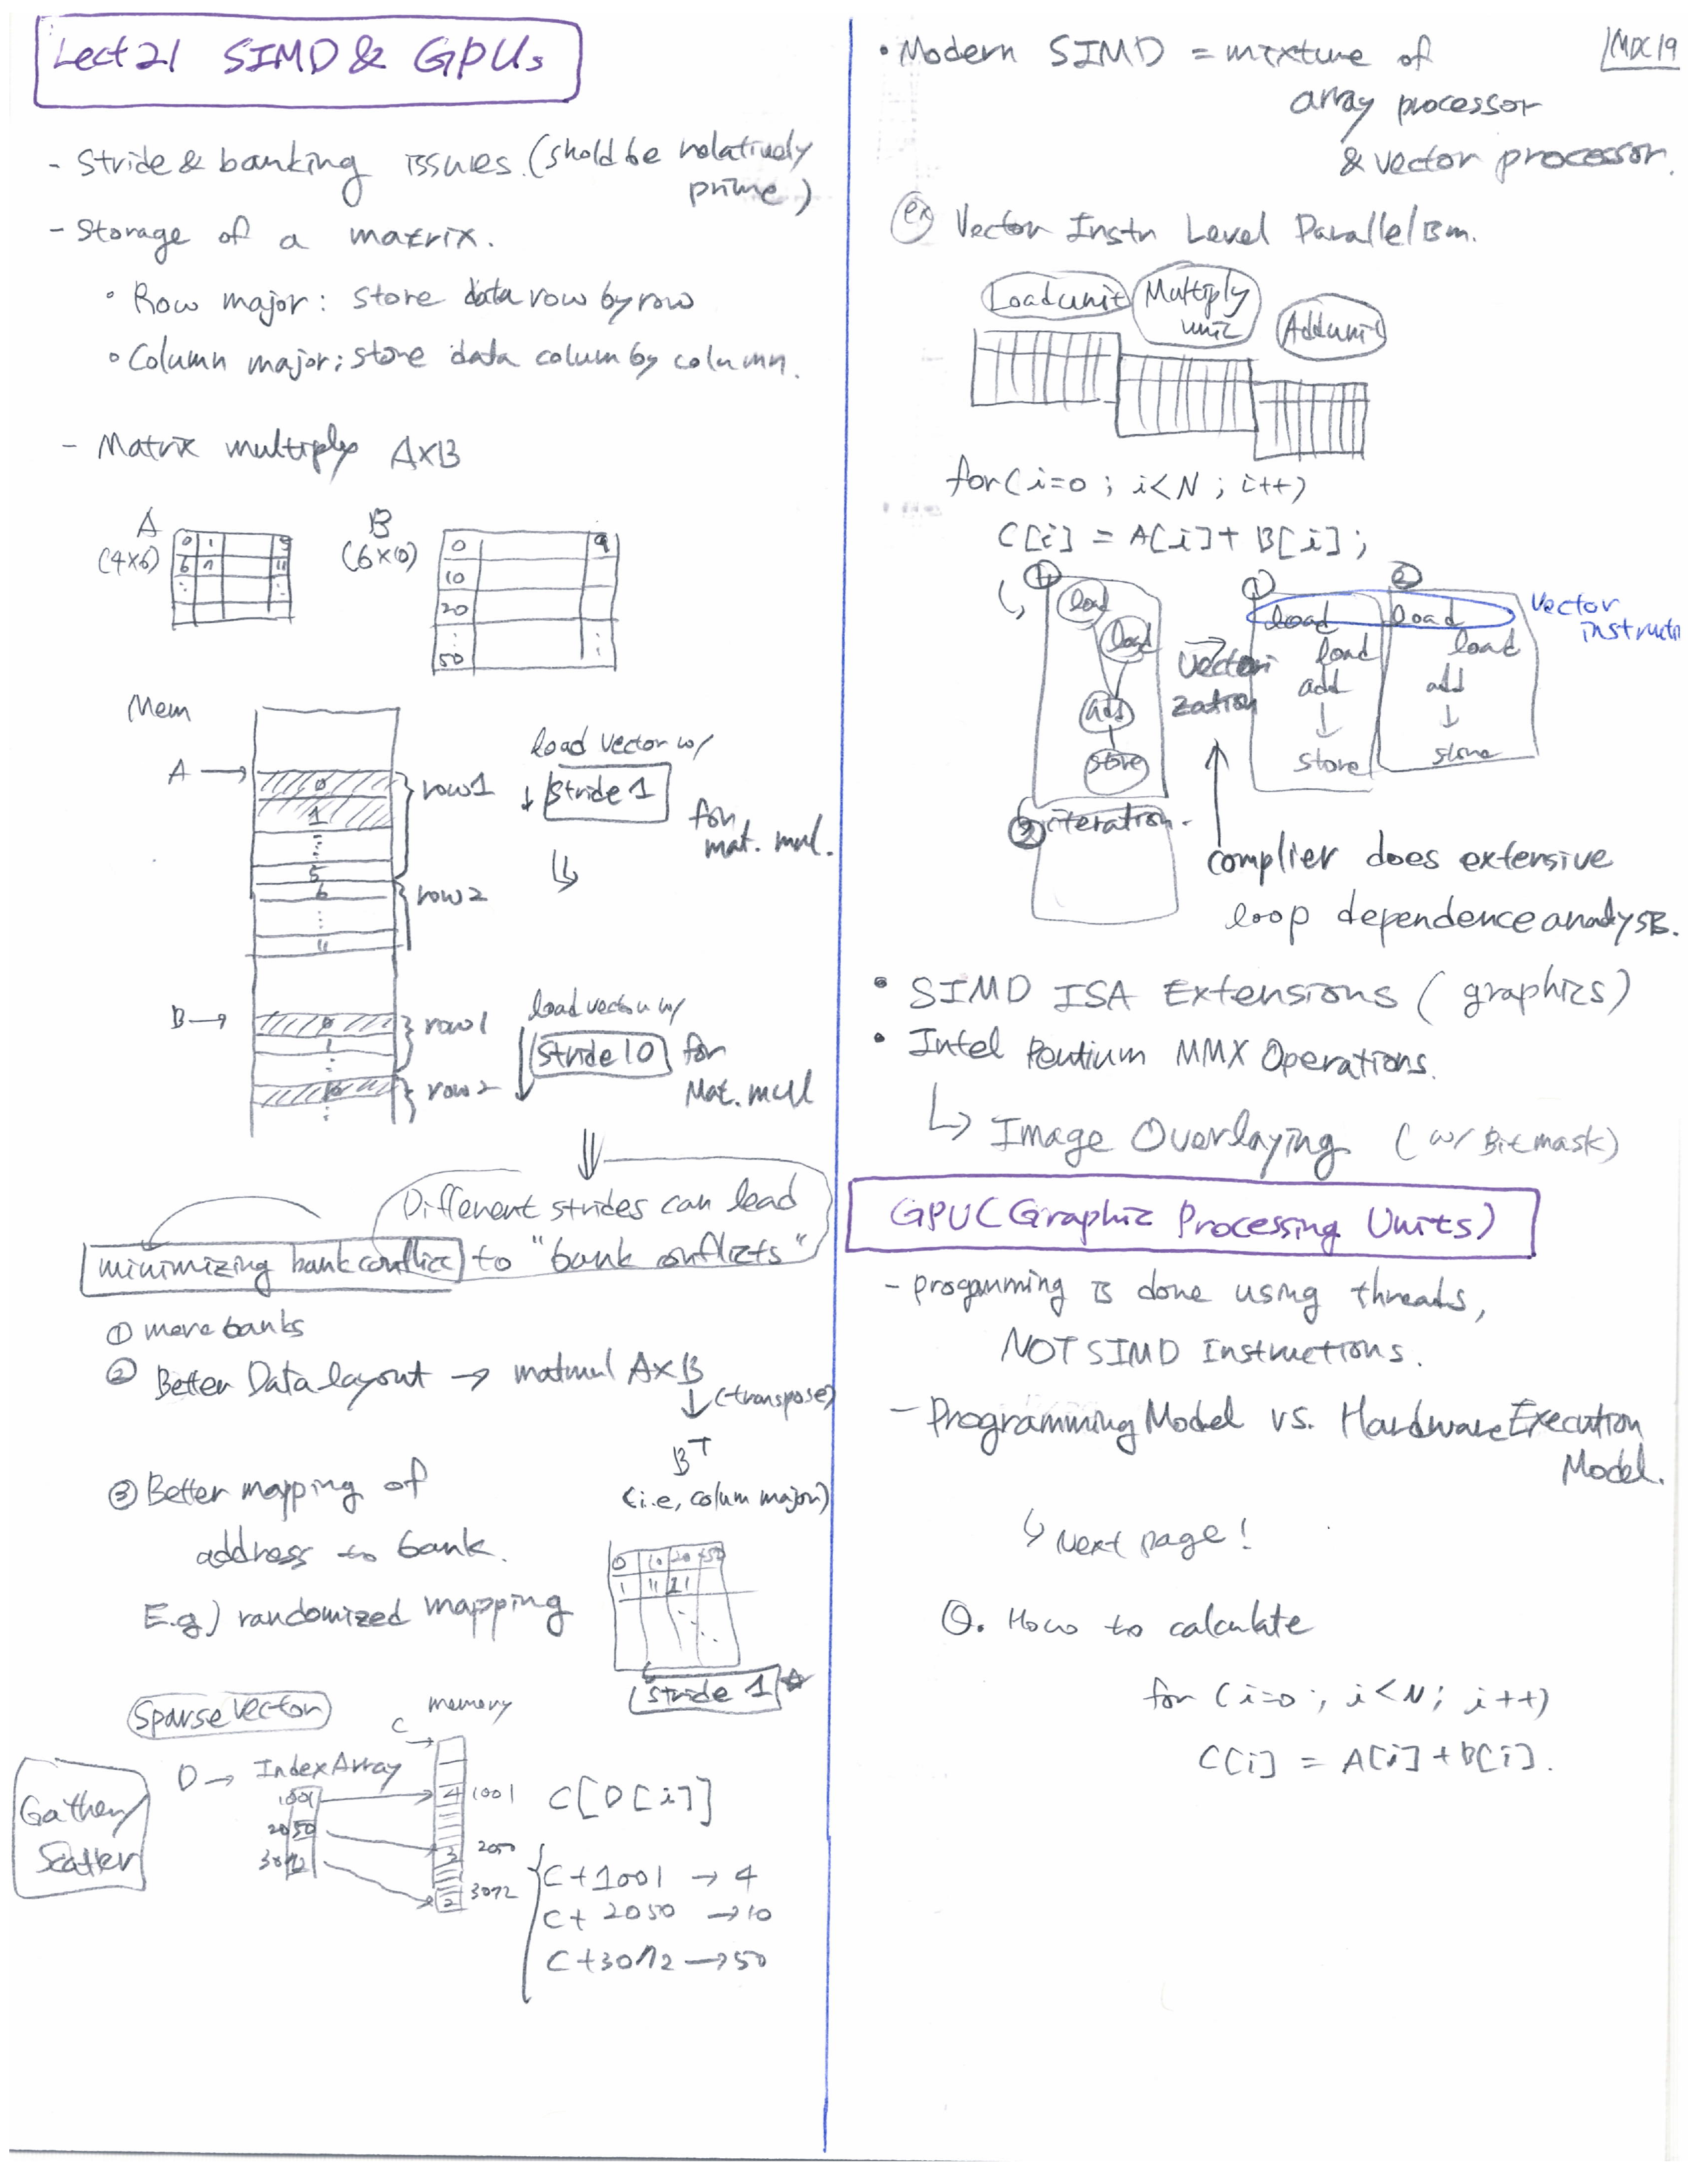 Lect 21 SIMD & GPUs
- Stride & banking issues. (shold be relatively
prime)
- Storage of a matrix.
• Row major: store data row by row
• Column major: store data colum by column.
- Matrix multiply A×B
A
(4×6)
0 1 5
6 7 11
B
(6×10)
0 9
10
20
50
Mem
A →
0
1
5
row 1
6
11
row 2
load vector w/
stride 1
for
mat. mul.
B →
0
1
row 1
10
row 2
load vector w/
stride 10 for
Mat. mul
Different strides can lead
to "bank conflicts"
minimizing bank conflict
① more banks
② Better Data layout → matmul A×B
↓ (transpose)
B^T
(i.e, colum major)
③ Better mapping of
address to bank.
E.g) randomized mapping
0 10 20 50
1 11 21
stride 1
Sparse Vector
Gather/
Scatter
D → Index Array
1001
2050
3072
memory
C
4 1001
3 2050
2 3072
C[D[i]]
C+1001 → 4
C+ 2050 → 10
C+3072 → 50
• Modern SIMD = mixture of
array processor
& vector processor.
ex Vector Instn Level Parallelism.
Load unit
Multiply
unit
Add unit
for(i=0 ; i<N ; i++)
C[i] = A[i]+B[i];
①
load
load
add
store
② iteration.
vectori
zation
① ②
load load
load load
add add
↓ ↓
store store
vector
instructi
complier does extensive
loop dependence analysis.
• SIMD ISA Extensions (graphics)
• Intel Pentium MMX Operations.
↳ Image Overlaying (w/ Bitmask)
GPU (Graphic Processing Units)
- progamming is done using threads,
NOT SIMD Instructions.
- Programming Model vs. Hardware Execution
Model.
↳ Next page!
Q. How to calculate
for (i=0 ; i<N ; i++)
C[i] = A[i]+B[i].